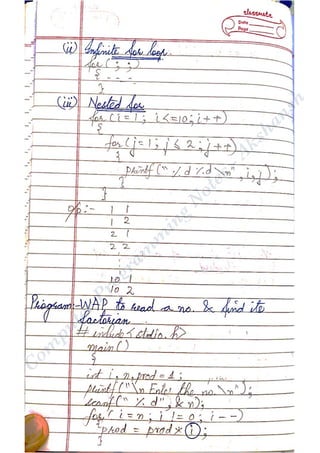 classmate
Date
Page
(ii) Infinite for loop.
for( ; ; )
{ - - -
}
(iii) Nested for
for(i=1; i<=10; i++)
{
for(j=1; j≤2; j++)
{
printf("%d %d\n", i, j);
}
}
o/p:- 1 1
1 2
2 1
2 2
10 1
10 2
Program:- WAP to read a no. & find its
factorian
# include<stdio.h>
main()
{
int i, n, prod=1;
printf("\n Enter the no. \n");
scanf("%d", &n);
for(i=n; i!=0; i--)
{prod = prod * i);
}
Computer Programming Notes Akshansh